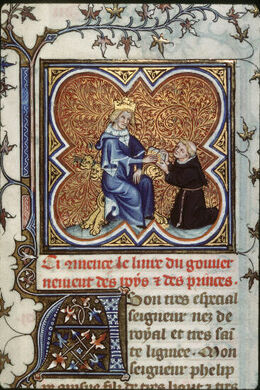 Ci cmence le liure du gouuer
nement des roys ⁊ des princes.
A son tres especial
seigneur nez de
royal et tres sai
te lignee. Mon
seigneur phelip